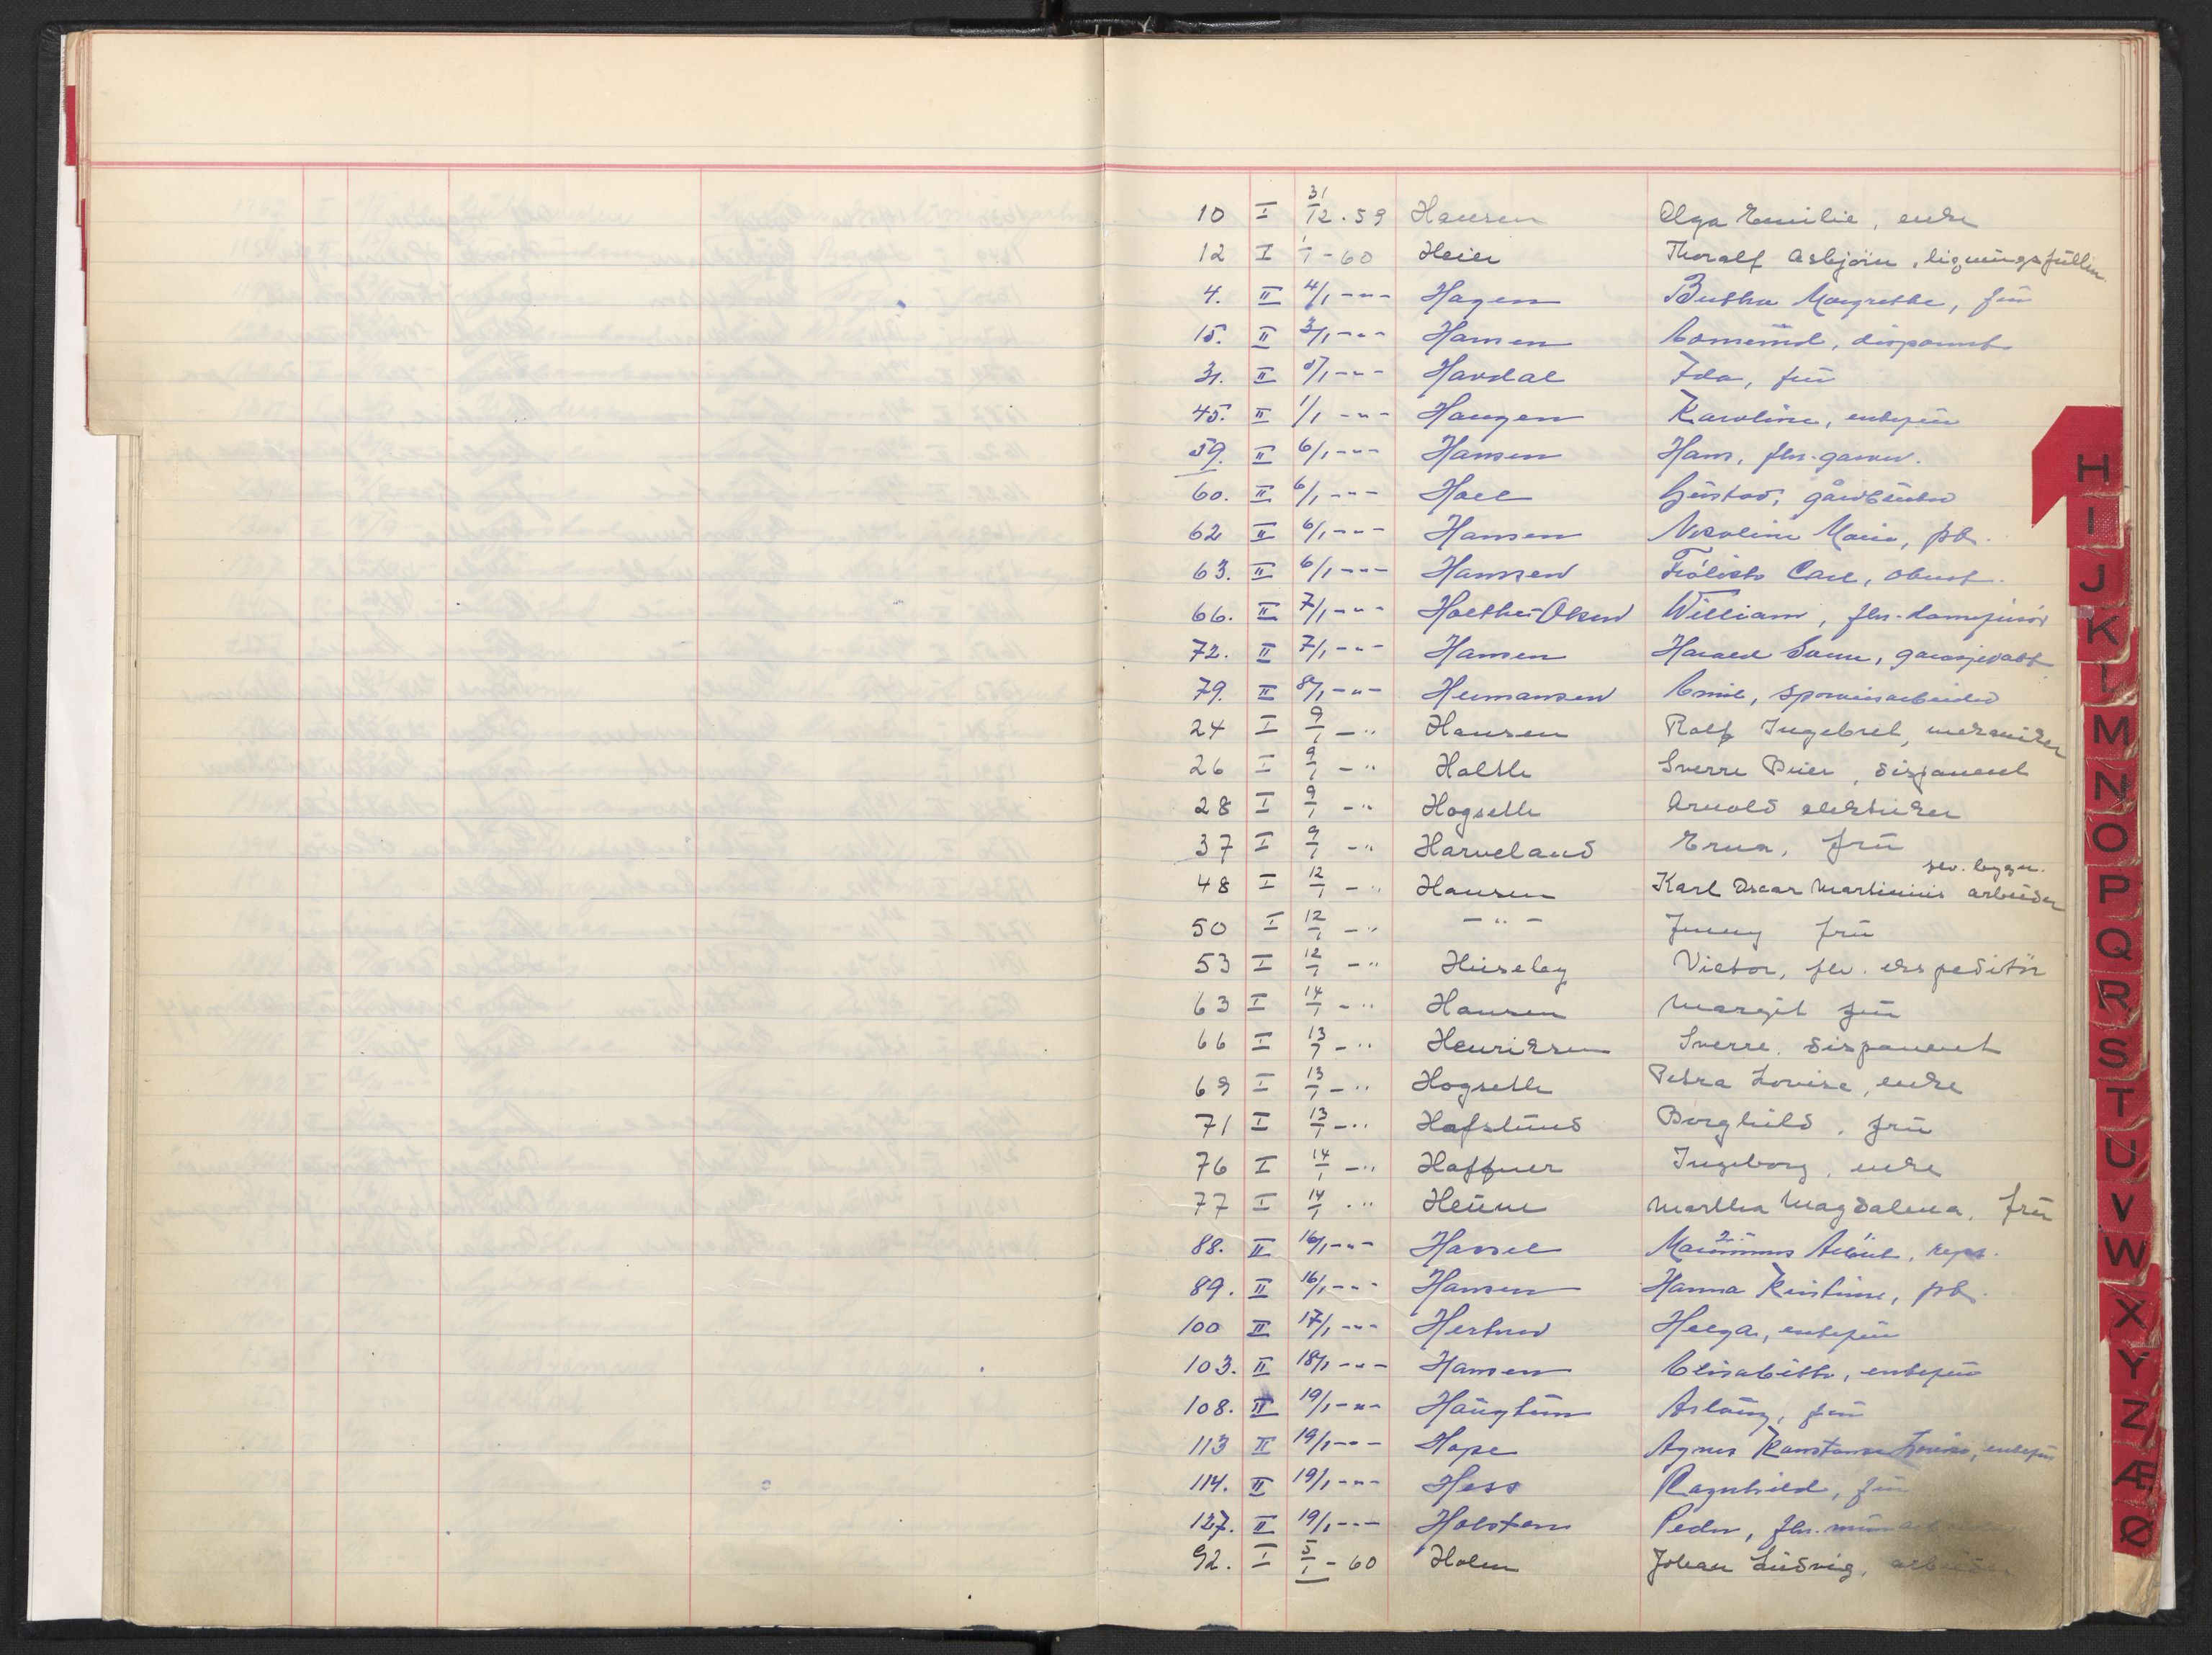 10 I 31/12.59 Hansen Olga Emilie, enke
12 I 1/1-60 Heier Thoralf Asbjörn, ligningsfullm.
4. II 4/1 -"- Hagen Bertha Margrethe, frü
15. II 3/1 -"- Hansen disponent
31. II 5/1 -"- Havdal Ida, frü
45. II 1/1 -"- Haugen Karoline, enkefrü
59. II 6/1 -"- Hansen Hans, fhv. garver.
60. II 6/1 -"- Hoel Güstav, gårdbrüker
62 II 6/1 -"- Hansen Nicoline Marie, pb.
63. II 6/1 -"- Hansen Carl, oberst.
66. II 7/1 -"- Holther-Olsen William, fhv. damefrisör
72. II 7/1 -"- Hansen Harald
79. II 8/1 -"- Hermansen Emil, sporveisarbeider
24 I 9/1 -" Hansen Rolf Ingebret, mekaniker
26 I 9/1 -" Holtle Sverre Peier, disponent
28 I 9/1 -" Hogseth Arnold elektriker
37 I 9/1 -" Harveland Erna, frü
48 I 12/1 -" Hansen Karl Oscar Martinius fev. bygn. arbeider
50 I 12/1 -" -"- Jenny frü
53 I 12/1 -" Hüseby Victor, fev. ekspeditör
63 I 14/1 -" Hansen Margit frü
66 I 13/1 -" Henriksen Sverre. disponent
69 I 13/1 -" Hogseth Petra Lovise, enke
71 I 13/1 -" Hafslünd Borghild, frü
76 I 14/1 -" Haffner Ingeborg, enke
77 I 14/1 -" Heüm Martha Magdalena, frü
88. II 16/1 -"- Hassel repr.
89. II 16/1 -"- Hansen Hanna Kristine, pb.
100 II 17/1 -"- Helga, enkefrü
103. II 18/1 -"- Hansen Elisabeth, enkefrü
108. II 19/1 -"- Haügtün Aslaüg, frü
113 II 19/1 -"- Hope Agnes Konstanse Lovise, enkefrü
114. II 19/1 -"- Hess Ragnhild, frü
127. II 19/1 -"- Holsten Peder, fhv.
92. I 5/1-60 Holm Johan Lüdvig, arbeider
H
I
J
K
L
M
N
O
P
Q
R
S
T
U
V
W
X
Y
Z
Æ
Ø